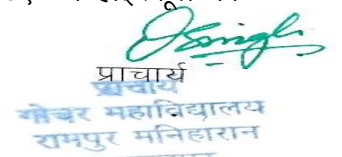 प्राचार्य
प्राचार्य
गोचर महाविद्यालय
रामपुर मनिहारान